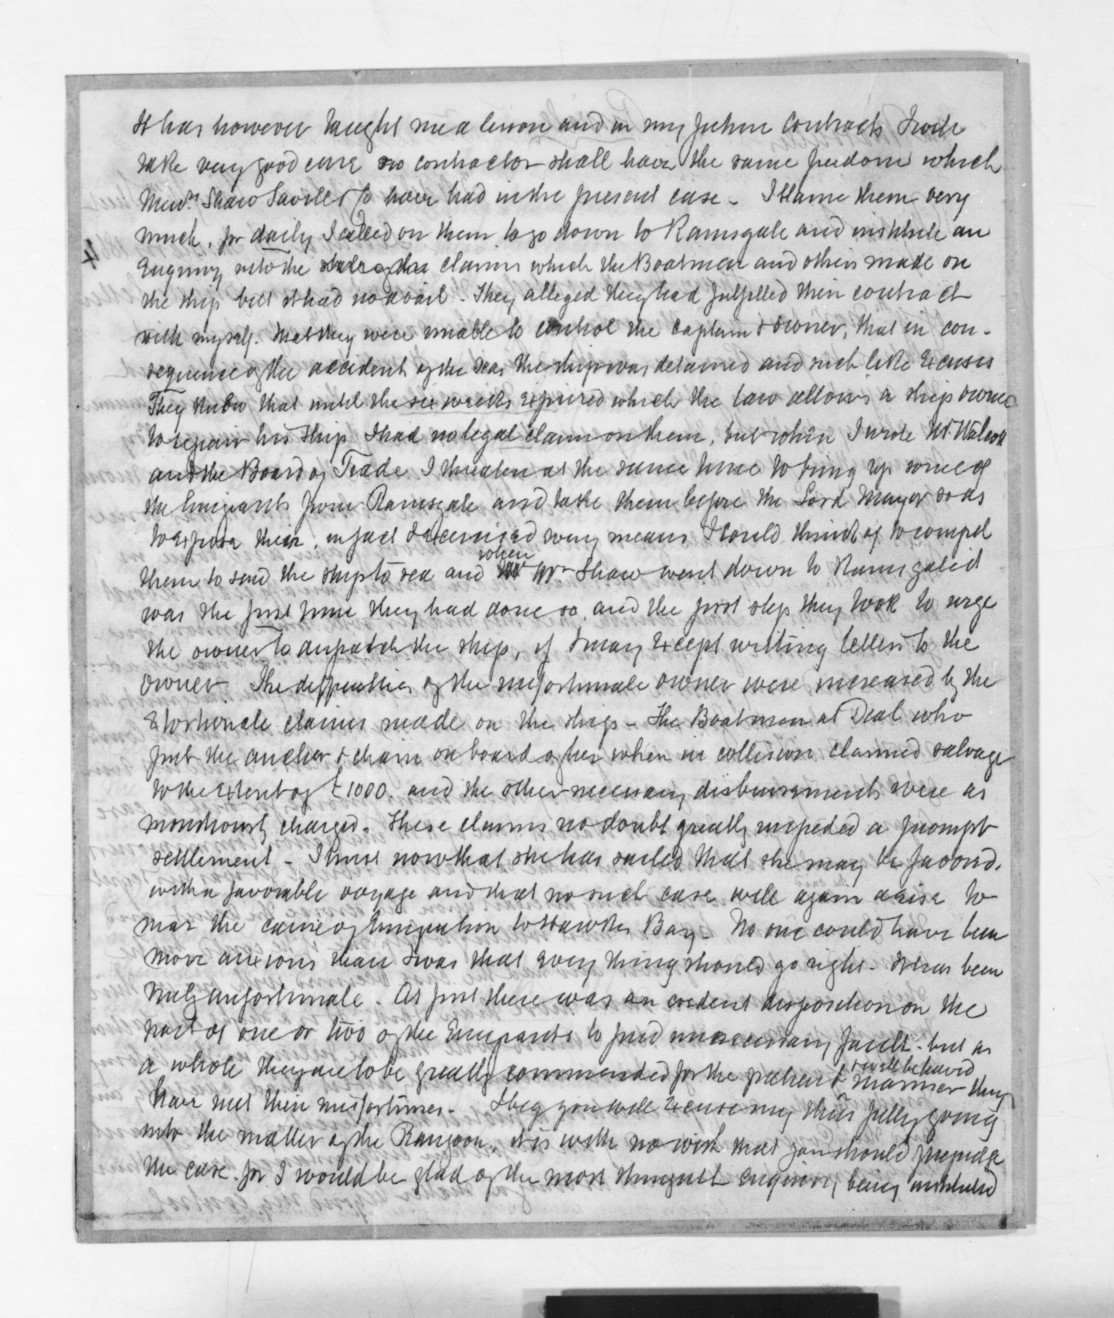 It has however taught me a lesson and in my future contracts I will
take very good care no contractor shall have the same freedom which
Messrs Shaw Savill & Co have had in the present case - I blame them very
much, for daily I called on them to go down to Ramsgate and institute an
Enquiry into the claims which the Boatmen and others made on
the ship but it had no avail - They alleged they had fulfilled their contract
with myself. that they were unable to control the captain & owner, that in con-
sequence of the accident of the seas the ship was detained and such like Excuses
They knew that until the six weeks Expired which the law allows a ship owner
to repair his ship I had no legal claim on them, but when I wrote Mr Walcott
and the Board of Trade I threaten at the same time to bring up some of
the Emigrants from Ramsgate and take them before the Lord Mayor so as
to Expose them, in fact I exercised every means I could think of to compel
them to send the ship to sea and when Mr Shaw went down to Ramsgate it
was the first time they had done so, and the first step they took to urge
the owner to despatch the ship, if I may Except writing letters to the
owner. The difficulties of the unfortunate owner were increased by the
Extortionate claims made on the ship - The Boatmen at Deal who
put the anchor & chain on board of her when in collision claimed salvage
to the Extent of £1000. and the other necessary disbursements were as
monstrously charged. These claims no doubt greatly impeded a prompt
settlement - I trust now that she has sailed that she may be favored
with a favorable voyage and that no such case will again arise to
mar the cause of Emigration to Hawkes Bay - No one could have been
more anxious than I was that every thing should go right - It has been
truly unfortunate. At first there was an evident disposition on the
part of one or two of the Emigrants to find unnecessary fault - but as
a whole they are to be greatly commended for the patient & well behaved manner they
have met their misfortunes - I beg you will Excuse my thus fully going
into the matter of the Rangoon, it is with no wish that you should prejudge
the case for I would be glad of the most thorough enquiry being instituted
4